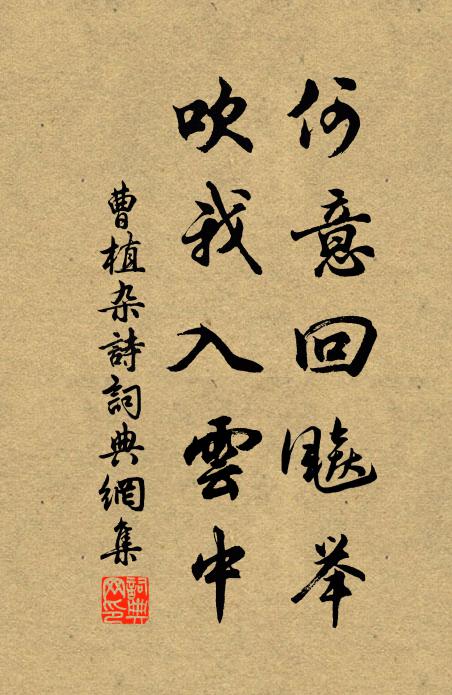 何意回飈举
吹我入雲中
曹植杂詩詞典網集
詞典
网印